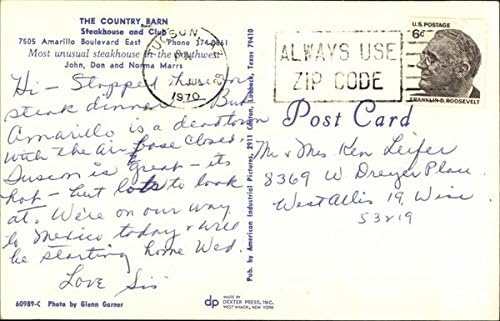 THE COUNTRY BARN
Steakhouse and Club
7505 Amarillo Boulevard East Phone 374-0861
Most unusual steakhouse in the Southwest
John, Don and Norma Marrs
Hi - Stopped here on
steak dinner. But
Amarillo is a deadtown
with the air base closed.
Tuscon is great - its
hot - but lots to look
at. We're on our way
to Mexico today & will
be starting home Wed.
Love Sis
60989-C Photo by Glenn Garner
Pub. by American Industrial Pictures, 2911 Canton, Lubbock, Texas 79410
TUCSON,
PM
JUL
1970
ALWAYS USE
ZIP CODE
U.S. POSTAGE
6¢
FRANKLIN D. ROOSEVELT
Post Card
Mr & Mrs Ken Leifer
8369 W Dreyer Place
West Allis 19, Wisc
53219
dp
MADE BY
DEXTER PRESS, INC.
WEST NYACK, NEW YORK